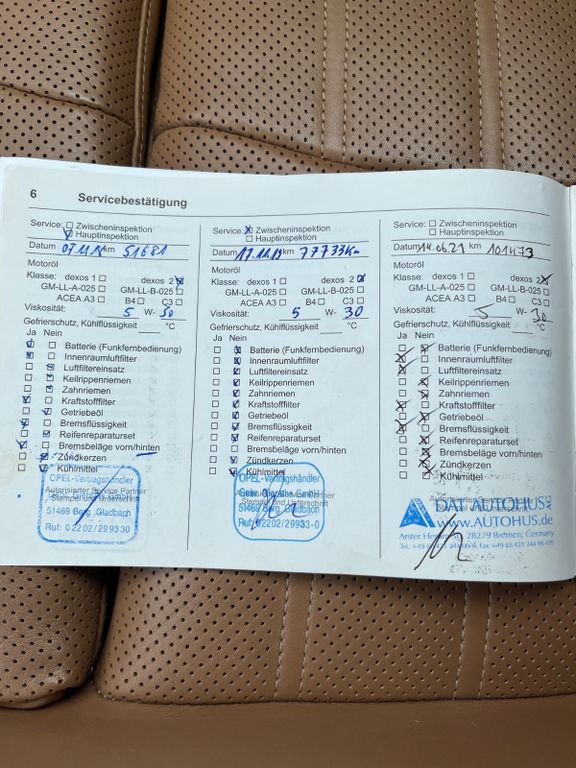 6 Servicebestätigung
Service: Zwischeninspektion
Hauptinspektion
Datum 07.11.18 km 51681
Motoröl
Klasse: dexos 1 dexos 2
GM-LL-A-025 GM-LL-B-025
ACEA A3 B4 C3
Viskosität: 5 W- 30
Gefrierschutz, Kühlflüssigkeit °C
Ja Nein
Batterie (Funkfernbedienung)
Innenraumluftfilter
Luftfiltereinsatz
Keilrippenriemen
Zahnriemen
Kraftstofffilter
Getriebeöl
Bremsflüssigkeit
Reifenreparaturset
Bremsbeläge vorn/hinten
Zündkerzen
Kühlmittel
OPEL-Vertragshändler
Autorisierter Service Partner
Stempel und Unterschrift
51469 Berg. Gladbach
Ruf: 0 22 02 / 2 99 33 0
Service: Zwischeninspektion
Hauptinspektion
Datum 17.12.19 km 77733 Km
Motoröl
Klasse: dexos 1 dexos 2
GM-LL-A-025 GM-LL-B-025
ACEA A3 B4 C3
Viskosität: 5 W- 30
Gefrierschutz, Kühlflüssigkeit °C
Ja Nein
Batterie (Funkfernbedienung)
Innenraumluftfilter
Luftfiltereinsatz
Keilrippenriemen
Zahnriemen
Kraftstofffilter
Getriebeöl
Bremsflüssigkeit
Reifenreparaturset
Bremsbeläge vorn/hinten
Zündkerzen
Kühlmittel
OPEL-Vertragshändler
Gebr. Gieraths GmbH
Stempel und Unterschrift
51469 Berg. Gladbach
Ruf: 02202/29933-0
Service: Zwischeninspektion
Hauptinspektion
Datum 14.06.21 km 101473
Motoröl
Klasse: dexos 1 dexos 2
GM-LL-A-025 GM-LL-B-025
ACEA A3 B4 C3
Viskosität: 5 W- 30
Gefrierschutz, Kühlflüssigkeit °C
Ja Nein
Batterie (Funkfernbedienung)
Innenraumluftfilter
Luftfiltereinsatz
Keilrippenriemen
Zahnriemen
Kraftstofffilter
Getriebeöl
Bremsflüssigkeit
Reifenreparaturset
Bremsbeläge vorn/hinten
Zündkerzen
Kühlmittel
DAT AUTOHUS AG
www.AUTOHUS.de
28279 Bremen; Germany